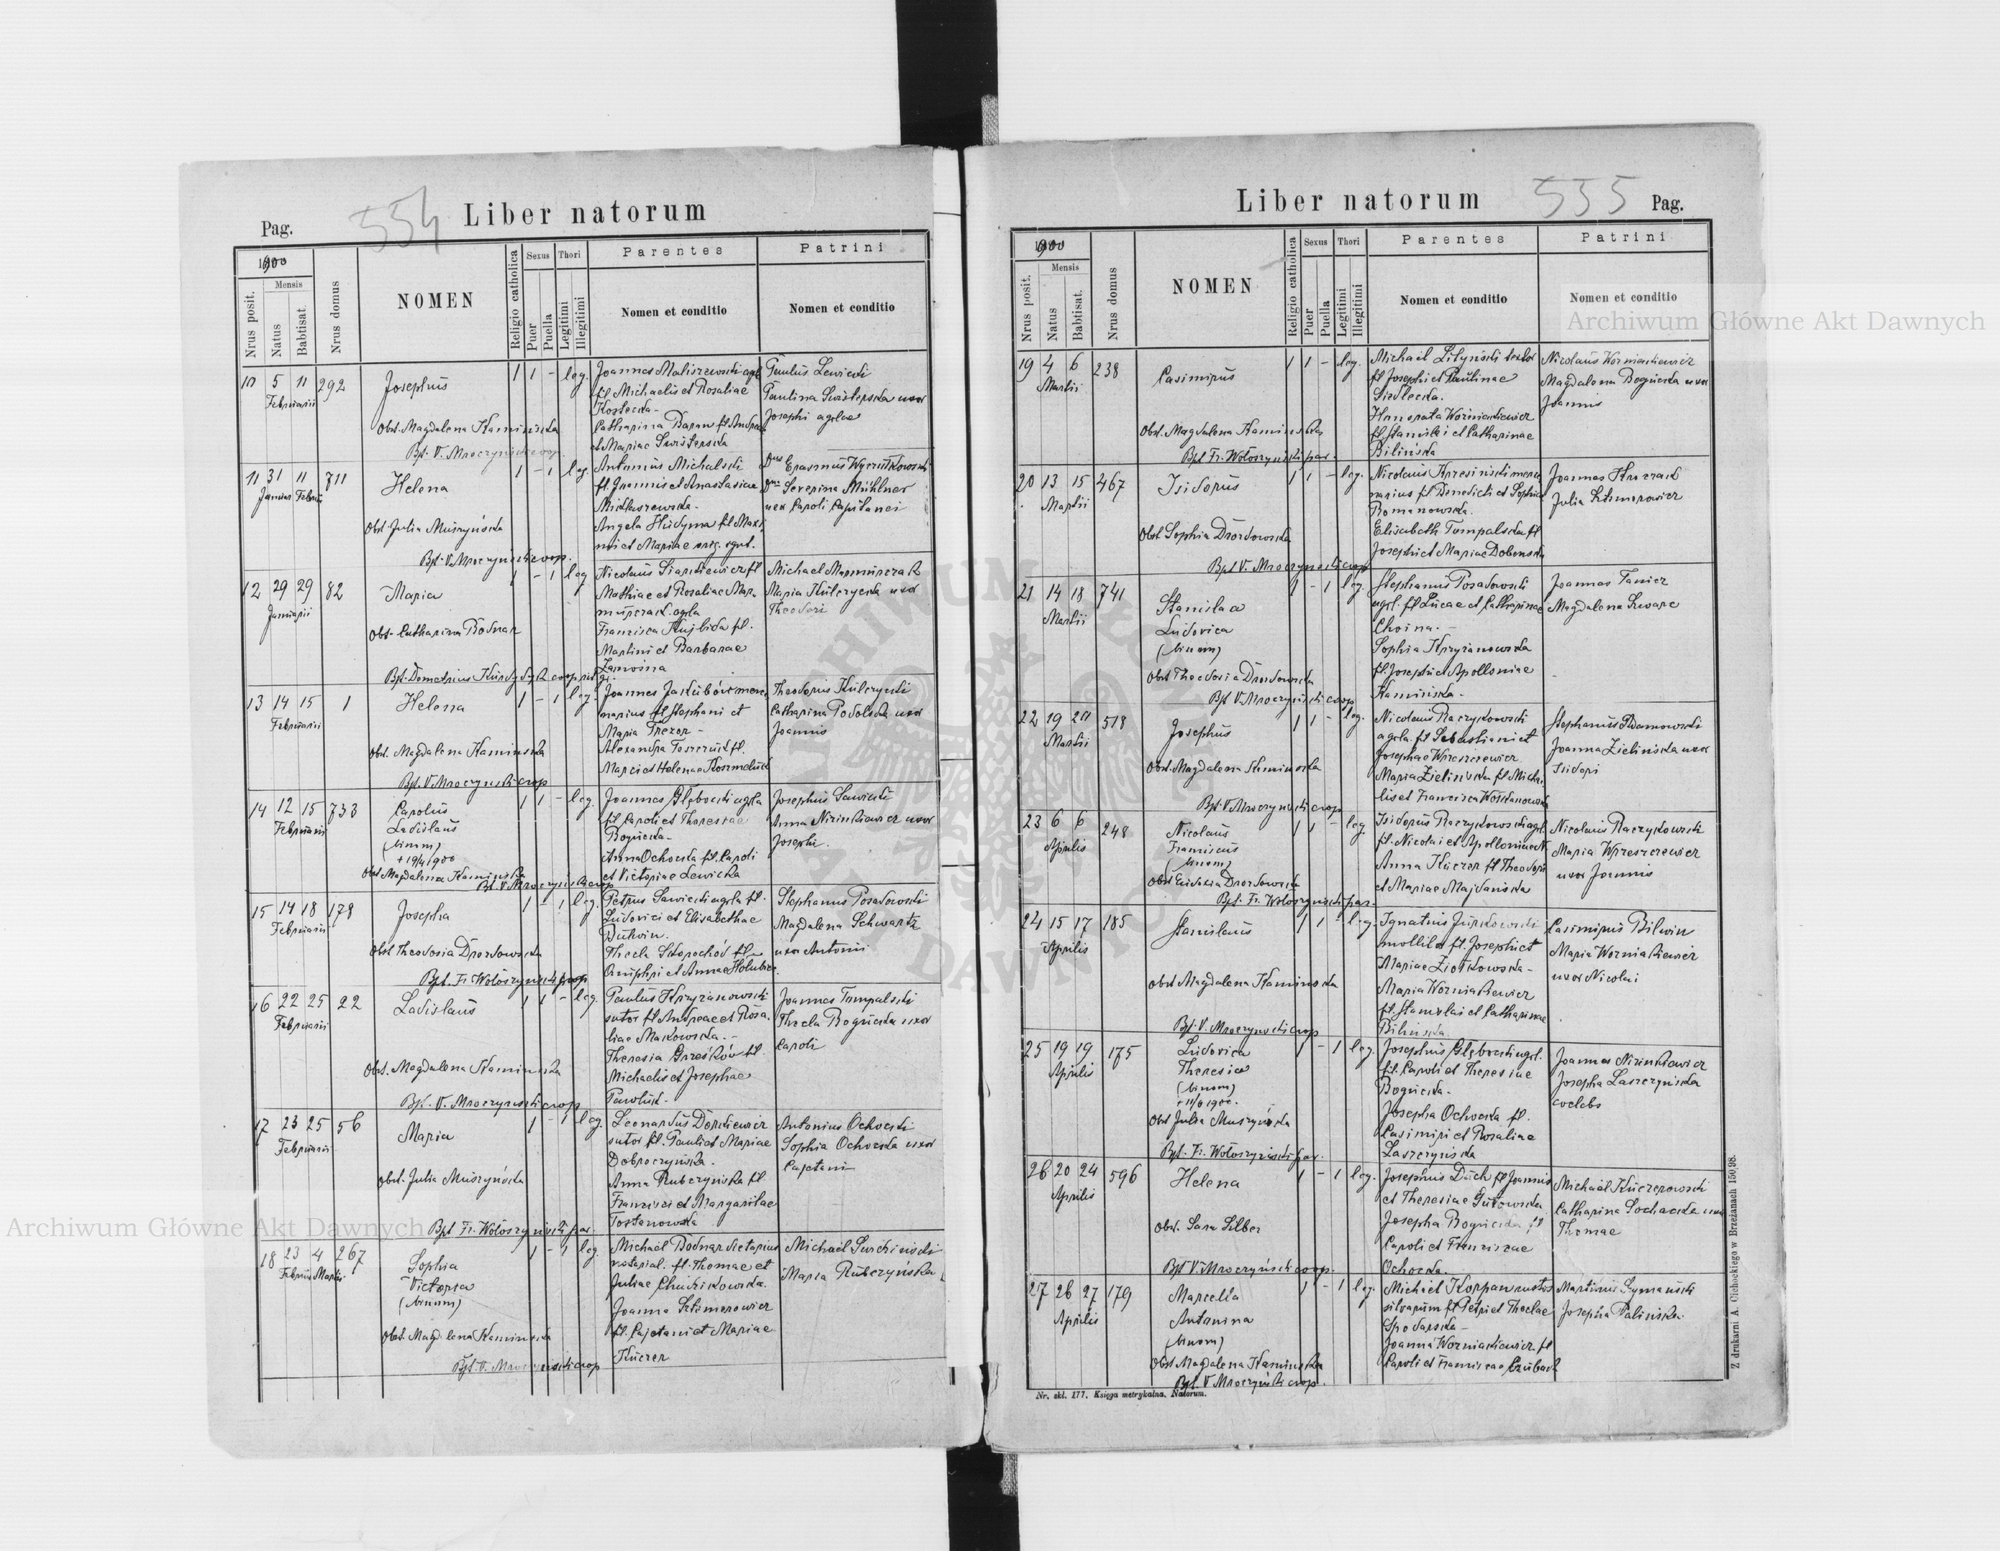 Pag.
554
Liber natorum
1900
Mensis
Nrus posit.
Natus
Babtisat.
Nrus domus
NOMEN
Religio catholica
Sexus
Puer
Puella
Thori
Legitimi
Illegitimi
Parentes
Nomen et conditio
Patrini
Nomen et conditio
10 5 11 292 Josephus 1 1 - leg.
Februarii
Obst. Magdalena Kamińska
Bpt. V. Mroczyński coop.
Joannes Maliszewski agla
fl. Michaelis et Rosaliae
Kostecka -
Catharina Baran fl. Andreae
et Mariae Świsterska
Paulus Lewicki
Paulina Świsterska uxor
Josephi agolae
11 31 11 711 Helena 1 - 1 leg
Januar Febru
Obst. Julia Muszyńska
Bpt. V. Mroczyński coop.
Antonius Michalski
fl. Joannis et Anastasiae
Angela Hudyma fl. Maxi
mi et Mariae
Dnus Erasmus
Dna Severina Mühlner
uxor Caroli Capitanei
12 29 29 82 Maria 1 - 1 leg
Januarii
Obst. Catharina Bodnar
Bpt. Demetrius
Nicolaus Siankiewicz fl
Mathiae et Rosaliae Mar
murczak agla
Francisca Kujbida fl.
Martini et Barbarae
Michael Marmurczak
Maria Kulczycka uxor
Theodori
13 14 15 1 Helena 1 - 1 leg.
Februarii
Obst. Magdalena Kaminska
Bpt. V. Mroczynski coop
Joannes Jakubów merce
narius fl. Stephani et
Maria Trezor -
Alexandra fl.
Marci et Helenae
Theodorus Kulczycki
Catharina Podolska uxor
Joannis
14 12 15 733 Carolus 1 1 - leg.
Februarii
Ladislaus
(binom)
+ 19/4 1900
Obst. Magdalena Kaminska
Bpt. V. Mroczyński coop
Joannes Głębocki agla
fl. Caroli et Theresiae
Bogucka -
Anna Ochocka fl. Caroli
et Victoriae Lewicka
Josephus Sawicki
Anna Nizinkiewicz uxor
Josephi.
15 14 18 178 Josepha 1 - 1 leg.
Februarii
Obst Theodosia Drozdowska
Bpt. Fr. Wołoszyński par.
Petrus Sawicki agla fl.
Ludovici et Elisabethae
Thecla fl.
Onuphri et Annae
Stephanus Posadowski
Magdalena Schwartz
uxor Antonii
16 22 25 22 Ladislaus 1 1 - leg.
Februarii
Obst. Magdalena Kaminska
Bpt. V. Mroczynski coop
Paulus Krzyżanowski
sutor fl. Andreae et Rosa
liae Makowska. -
Theresia Grześków fl.
Michaelis et Josephae
Pawluk -
Joannes Trmpalski
Thecla Bogucka uxor
Caroli
17 23 25 56 Maria 1 - 1 leg.
Februarii
Obst. Julia Muszyńska
Bpt. Fr. Wołoszyński par.
Leonardus
sutor fl. Pauli et Mariae
Dobroczyńska.
Anna Rubczyńska fl
Francisci et Margaritae
Tostanowska
Antonius Ochocki
Sophia Ochocka uxor
Cajetani
18 23 4 267 Sophia 1 - 1 leg.
Februa Martii
Victoria
(binom)
Obst. Magdalena Kaminska
Bpt. V. Mroczynski coop
Michael Bodnar
notarial. fl. Thomae et
Juliae
Joanna Sklimerowicz
fl. Cajetani et Mariae
Kuczer
Michael
Maria Rubczyńska
Liber natorum
555
Pag.
1900
Mensis
Nrus posit.
Natus
Babtisat.
Nrus domus
NOMEN
Religio catholica
Sexus
Puer
Puella
Thori
Legitimi
Illegitimi
Parentes
Nomen et conditio
Patrini
Nomen et conditio
19 4 6 238 Casimirus 1 1 - leg.
Martii
Obst. Magdalena Kaminska
Bpt Fr. Wołoszyński par.
Michael Lityński
fl. Josephi et Paulinae
Siedlecka.
Honorata Wozniakiewicz
fl. Stanislai et Catharinae
Bilińska
Nicolaus Wozniakiewicz
Magdalena Bogucka uxor
Joannis
20 13 15 467 Isidorus 1 1 - leg.
Martii
Obst Sophia Drozdowska
Bpt. V. Mroczynski coop
Nicolaus Krzesiński merce
narius fl. Benedicti et Sophiae
Romanowska.
Elisabeth Tumpalska fl.
Josephi et Mariae
Joannes
Julia
21 14 18 741 Stanislaa 1 - 1 leg.
Martii
Ludovica
(binom)
Obst Theodosia Drozdowska
Bpt V. Mroczyński coop
Stephanus Posadowski
agrl. fl. Lucae et Catharinae
Choina. -
Sophia Krzyżanowska
fl. Josephi et Apolloniae
Kamińska -
Joannes Tanier
Magdalena Szwarc
22 19 20 518 Josephus 1 1 - leg.
Martii
Obst. Magdalena Kaminska
Bpt. V. Mroczyński coop
Nicolaus Raczykowski
agla. fl. Sebastiani et
Josephae Wrzeszczewicz
Maria Zielińska fl. Micha
elis et Francisca
Stephanus Adamowski
Joanna Zielińska uxor
Isidori
23 6 6 248 Nicolaus 1 1 - leg
Aprilis
Franciscus
(binom)
Obst Eudoxia Drozdowska
Bpt. Fr. Wołoszyński par.
Isidorus Raczykowski agl.
fl. Nicolai et Apolloniae
Anna Kuczer fl. Theodori
et Mariae Majdańska
Nicolaus Raczykowski
Maria Wrzeszczewicz
uxor Joannis
24 15 17 185 Stanislaus 1 1 - leg.
Aprilis
Obst Magdalena Kaminska
Bpt V. Mroczynski coop
Ignatius Jurkowski
fl. Josephi et
Mariae Ziółkowska -
Maria Wozniakiewicz
fl. Stanislai et Catharinae
Bilińska
Casimirus Bilwin
Maria Wozniakiewicz
uxor Nicolai
25 19 19 175 Ludovica 1 - 1 leg.
Aprilis
Theresia
(binom)
Obst Julia Muszyńska
Bpt. Fr. Wołoszyński par.
Josephus Głębocki agl.
fl. Caroli et Theresiae
Bogucka.
Josepha Ochocka fl.
Casimiri et Rosaliae
Laszczyńska
Joannes Nizinkiewicz
Josepha Laszczyńska
coelebs
26 20 24 596 Helena 1 - 1 leg.
Aprilis
Obst. Sara Silber
Bpt V. Mroczyński coop.
Josephus Duch fl. Joannis
et Theresiae Gutowska
Josepha Bogucka fl
Caroli et Franciscae
Ochocka.
Michaël Kuczerowski
Catharina Sochacka uxor
Thomae
27 26 27 179 Marcella 1 - 1 leg.
Aprilis
Antonina
(binom)
Obst Magdalena Kaminska
Bpt. V. Mroczyński coop.
Michael Korpan custos
silvarum fl. Petri et Theclae
Joanna Wozniakiewicz fl
Caroli et Franciscae
Martinus Szymański
Josepha Palińska
Nr. skl. 177. Księga metrykalna. Natorum.
Z drukarni A. Cichockiego w Brzeżanach 150/98.
Archiwum Główne Akt Dawnych
Archiwum Główne Akt Dawnych
ARCHIWUM GŁÓWNE AKT DAWNYCH